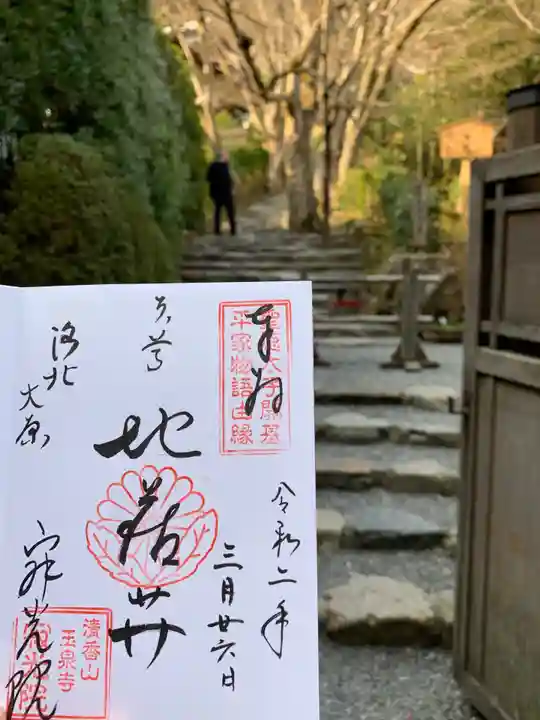 奉拝
聖徳太子開基
平家物語由縁
令和二年
三月廿六日
本尊
地蔵尊
洛北
大原
寂光院
清香山
玉泉寺
寂光院